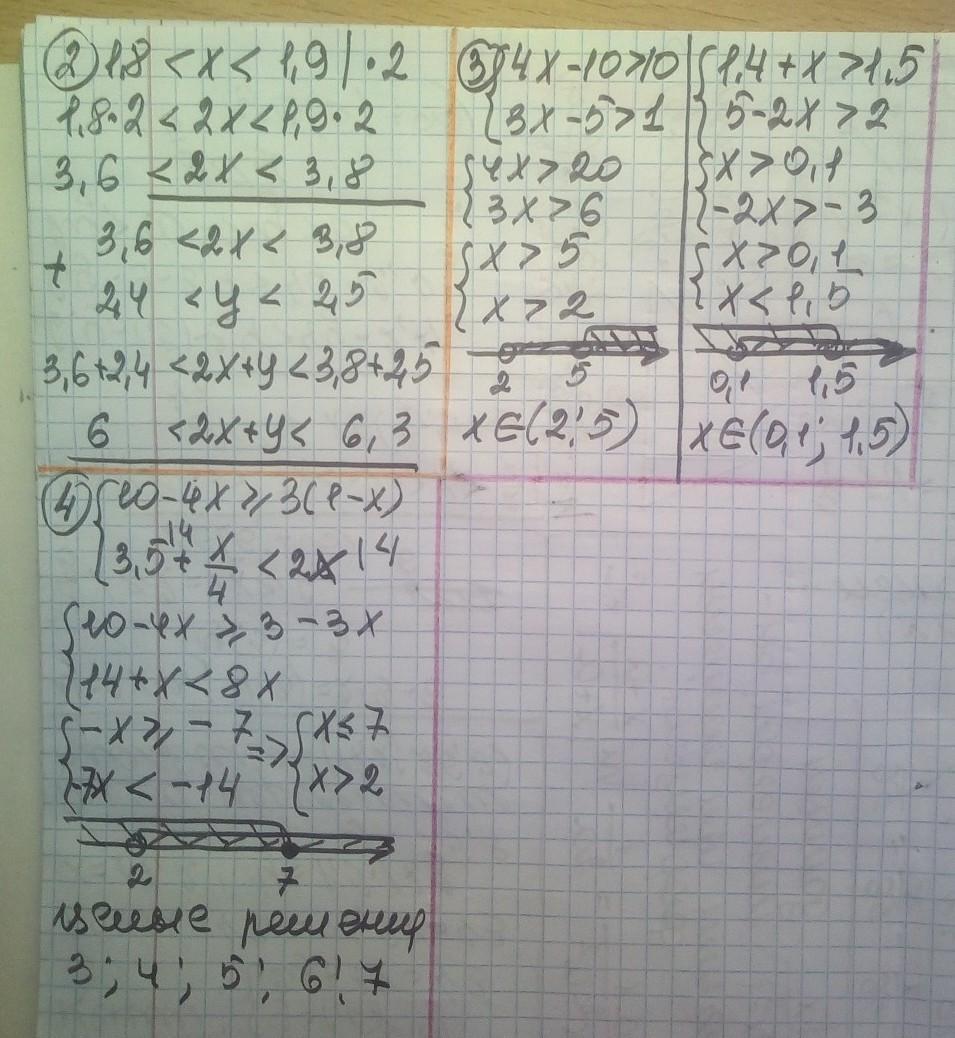 ② 1,8 < x < 1,9 | · 2
1,8·2 < 2x < 1,9·2
3,6 < 2x < 3,8
3,6 < 2x < 3,8
+
2,4 < y < 2,5
3,6+2,4 < 2x+y < 3,8+2,5
6 < 2x+y < 6,3
③ { 4x - 10 > 10
3x - 5 > 1
{ 4x > 20
3x > 6
{ x > 5
x > 2
2 5
x ∈ (2; 5)
{ 1,4 + x > 1,5
5 - 2x > 2
{ x > 0,1
-2x > -3
{ x > 0,1
x < 1,5
0,1 1,5
x ∈ (0,1; 1,5)
④ { 10 - 4x ⩾ 3(1-x)
3,5 + x/4 < 2x |4
{ 10 - 4x ⩾ 3 - 3x
14 + x < 8x
{ -x ⩾ -7 => { x ≤ 7
-7x < -14 x > 2
2 7
целые решения
3; 4; 5; 6; 7